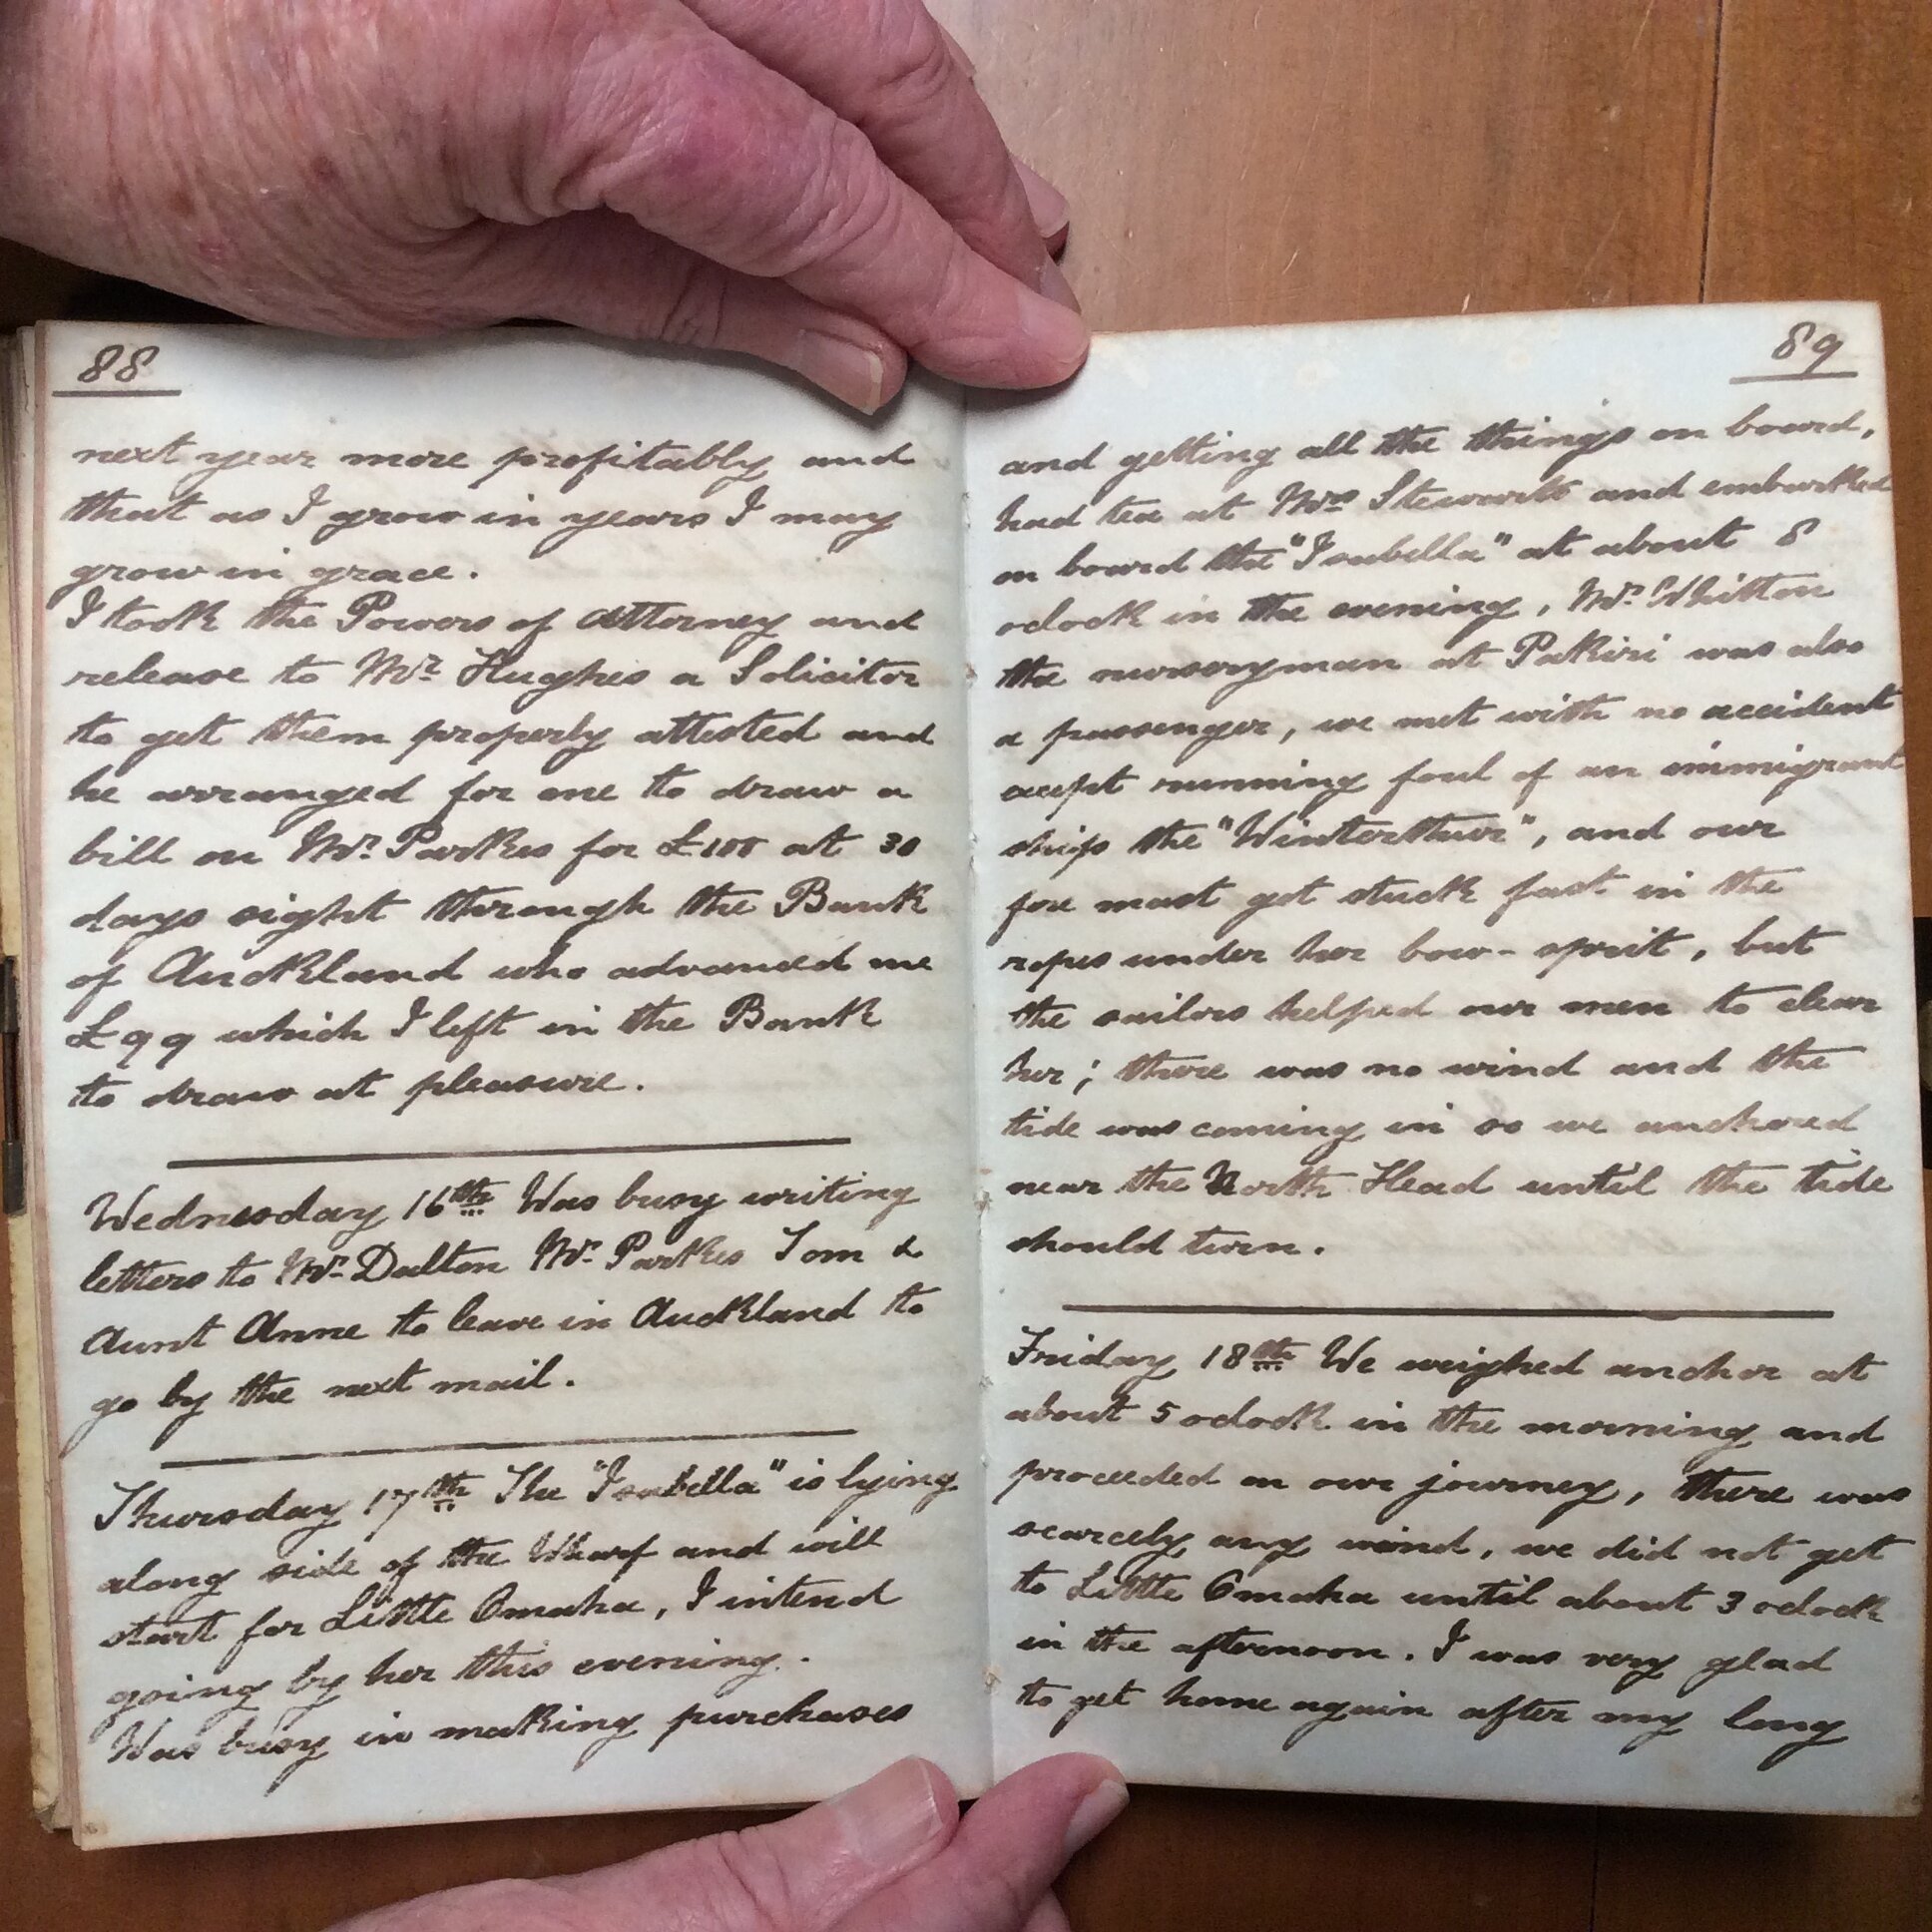 88
next year more profitably and
that as I grow in years I may
grow in grace.
I took the Powers of Attorney and
release to Mr. Hughes a Solicitor
to get them properly attested and
he arranged for me to draw a
bill on Mr. Parkes for £100 at 30
days sight through the Bank
of Auckland who advanced me
£99 which I left in the Bank
to draw at pleasure.
Wednesday 16th Was busy writing
letters to Mr. Dalton Mr. Parkes Tom &
Aunt Anne to leave in Auckland to
go by the next mail.
Thursday 17th The "Isabella" is lying
along side of the Wharf and will
start for Little Omaha, I intend
going by her this evening.
Was busy in making purchases
89
and getting all the things on board,
had tea at Mrs Stewarts and embarked
on board the "Isabella" at about 8
oclock in the evening, Mr. Whitton
the nurseryman at Pakiri was also
a passenger, we met with no accident
except running foul of an immigrant
ships the "Winterthur", and our
fore mast got stuck fast in the
ropes under her bow-sprit, but
the sailors helped our men to clear
her; there was no wind and the
tide was coming in so we anchored
near the North Head until the tide
should turn.
Friday 18th We weighed anchor at
about 5 oclock in the morning and
proceeded on our journey, there was
scarcely any wind, we did not get
to Little Omaha until about 3 oclock
in the afternoon. I was very glad
to get home again after my long